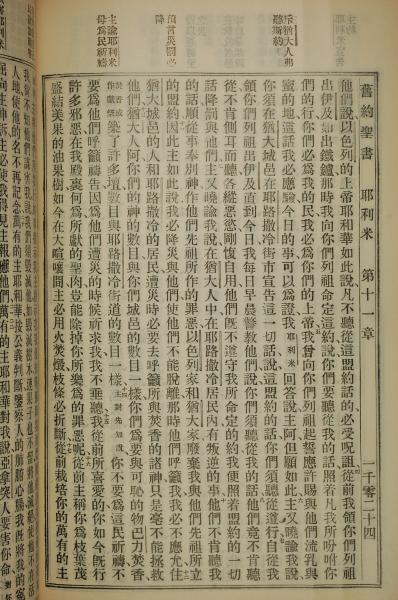 舊約聖書 耶利米 第十一章 一千零二十四
他們說以色列的上帝耶和華如此說凡不聽從這盟約話的必受呪詛從前我領你們列祖
出伊及如出鐵鑪那時我向你們列祖命定這約說你們要聽從我的話照着凡我所吩咐你
們的行你們必爲我的民我必爲你們的上帝我曾向你們列祖起誓應許賜與他們流乳與
蜜的地這話我必應驗今日的事可以爲證我耶利米回答說主阿但願如此主又曉諭我說
你須在猶大城邑在耶路撒冷街市宣告這一切話說這盟約的話你們須聽從遵行自從我
領你們列祖出伊及直到今日我每日早晨警教他們說你們須聽從我的話他們竟不肯聽
從不肯側耳而聽各縱惡慾剛愎自用他們既不遵守我所命定的約我便照着盟約的一切
話降罰與他們主又曉諭我說在猶大人中在耶路撒冷居民內有叛逆的事他們不肯聽我
的話順從事奉別神作他們先祖所作的罪惡以色列家和猶大家廢棄我與他們先祖所立
的盟約因此主如此說我必降災與他們使他們不能脫離那時他們呼籲我我必不應允住
猶大城邑的人和耶路撒冷的居民遭災時必要去呼籲所與焚香的諸神只是毫不能拯救
他們猶大人阿你們的神的數目與你們城邑的數目一樣你們爲要與可恥的物巴力焚香
焚香或作獻祭築了許多壇數目與耶路撒冷街道的數目一樣主對先知說你不要爲這民祈禱不
要爲他們呼籲禱告因爲他們遭災的時候祈求我我不垂聽我從前所喜愛的你如今既行
許多邪惡在我殿裏何爲所獻的聖肉豈能除掉你所樂爲的罪惡呢從前主稱你爲枝葉茂
盛結美果的油果樹如今在大喧嚷間主必用火焚燬枝條必折斷從前栽培你的萬有的主
斥猶大人弗
聽斯約
預言災罰必
降
主諭耶利米
毋爲民祈禱